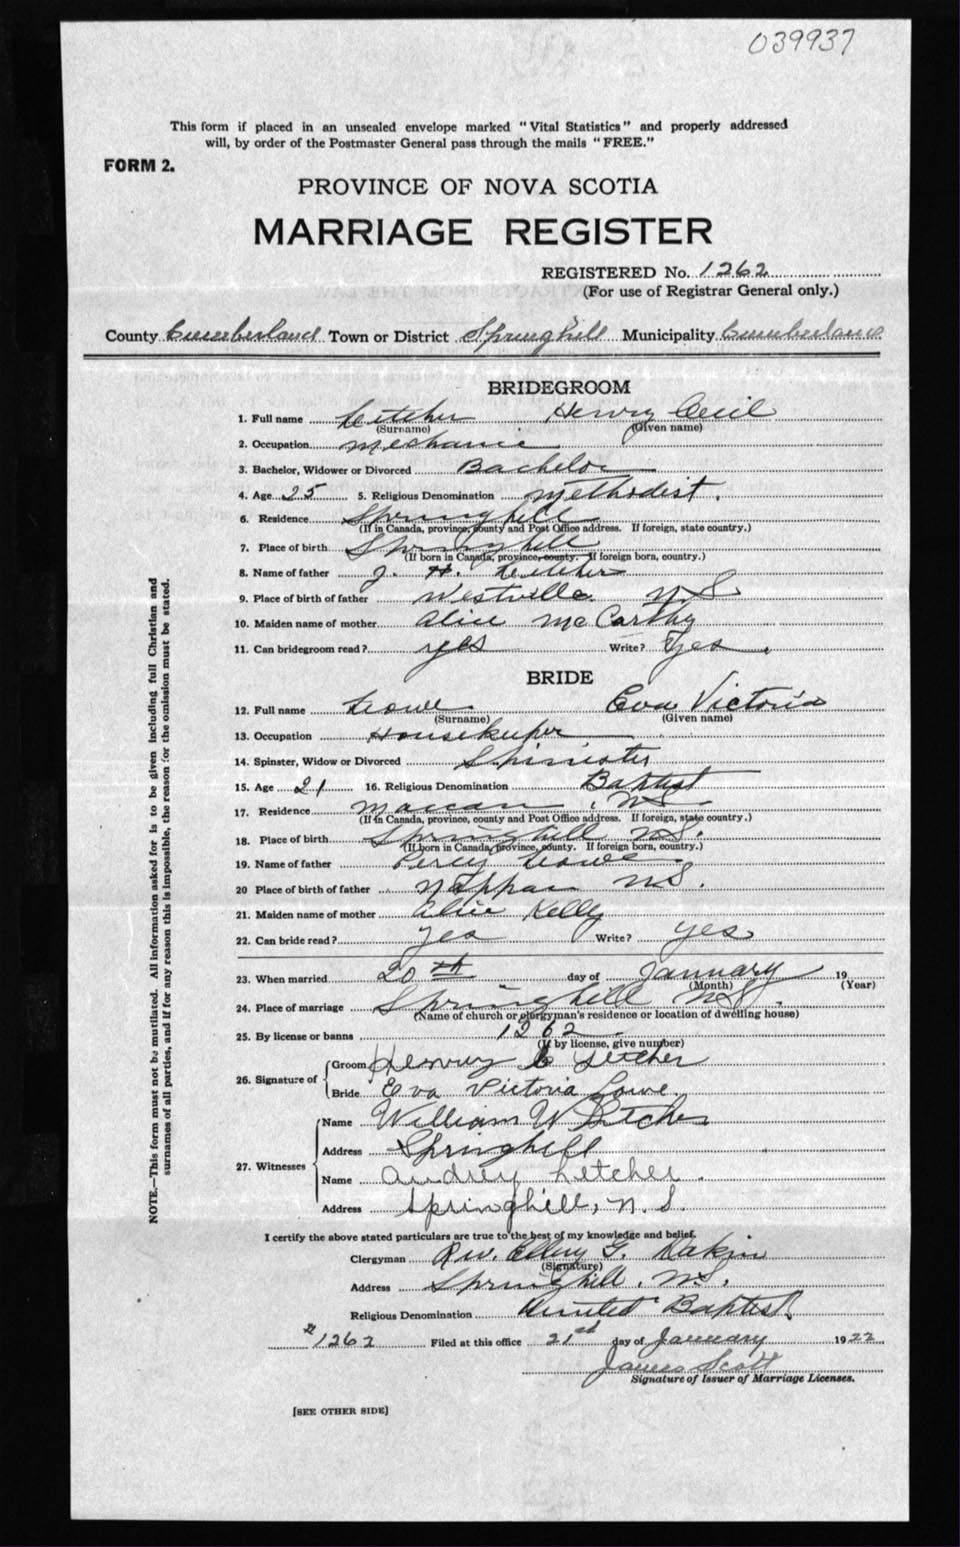 039937
This form if placed in an unsealed envelope marked "Vital Statistics" and properly addressed
will, by order of the Postmaster General pass through the mails "FREE."
FORM 2.
PROVINCE OF NOVA SCOTIA
MARRIAGE REGISTER
REGISTERED No. 1262
(For use of Registrar General only.)
County Cumberland Town or District Springhill Municipality Cumberland
BRIDEGROOM
1. Full name Letcher Henry Cecil
(Surname) (Given name)
2. Occupation mechanic
3. Bachelor, Widower or Divorced Bachelor
4. Age 25 5. Religious Denomination Methodist.
6. Residence Springhill
(If in Canada, province, county and Post Office address. If foreign, state country.)
7. Place of birth Springhill
(If born in Canada, province, county. If foreign born, country.)
8. Name of father J. H. Letcher
9. Place of birth of father Westville N.S
10. Maiden name of mother Alice McCarthy
11. Can bridegroom read? yes Write? Yes.
BRIDE
12. Full name Lowe Eva Victoria
(Surname) (Given name)
13. Occupation Housekeeper
14. Spinster, Widow or Divorced Spinister
15. Age 21 16. Religious Denomination Baptist
17. Residence Maccan, N.S
(If in Canada, province, county and Post Office address. If foreign, state country.)
18. Place of birth Springhill N.S.
(If born in Canada, province, county. If foreign born, country.)
19. Name of father Percy Lowe
20 Place of birth of father Nappan N.S.
21. Maiden name of mother Alice Kelly
22. Can bride read? Yes Write? yes
23. When married 20th day of January 19
(Month) (Year)
24. Place of marriage Springhill N.S.
(Name of church or clergyman's residence or location of dwelling house)
25. By license or banns 1262
(If by license, give number)
26. Signature of
Groom Henry C Letcher
Bride Eva Victoria Lowe
27. Witnesses
Name William W Letcher
Address Springhill
Name Audrey Letcher.
Address Springhill, N.S.
I certify the above stated particulars are true to the best of my knowledge and belief.
Clergyman Rev. Ellery G. Dakin
(Signature)
Address Springhill, N.S.
Religious Denomination United Baptist
# 1262 Filed at this office 21st day of January 1922
James Scott
Signature of Issuer of Marriage Licenses.
[SEE OTHER SIDE]
NOTE.—This form must not be mutilated. All information asked for is to be given including full Christian and
surnames of all parties, and if for any reason this is impossible, the reason for the omission must be stated.